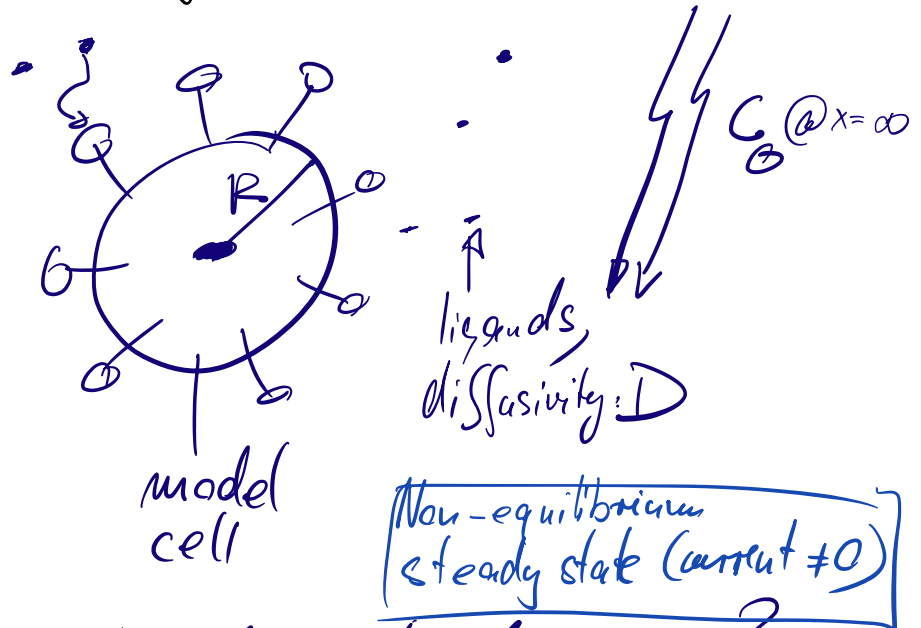 R
C₀ @ x = ∞
ligands,
diffusivity: D
model
cell
Non-equilibrium
steady state (current ≠ 0)